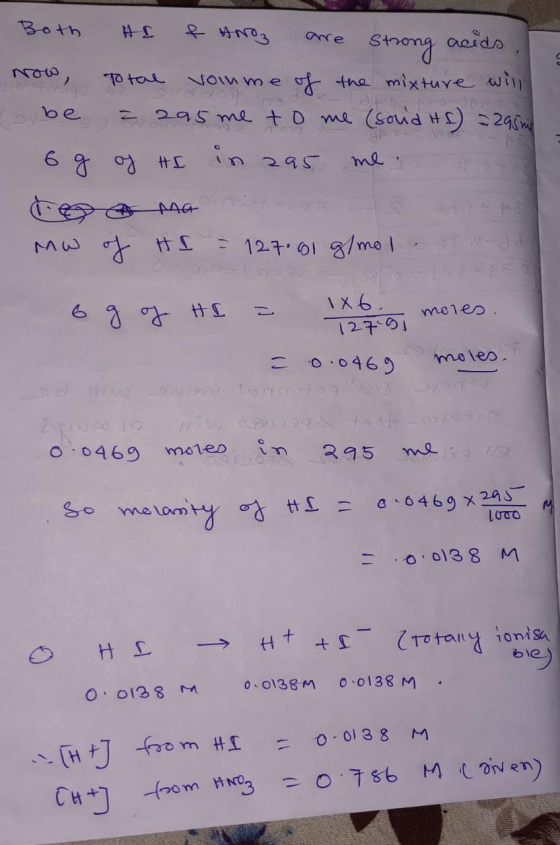 Both HI & HNO3 are strong acids.
Now, Total volume of the mixture will
be = 295 ml + 0 ml (solid HI) = 295 ml
6 g of HI in 295 ml.
MW of HI = 127.91 g/mol.
6 g of HI = 1×6. / 127.91 moles.
= 0.0469 moles.
0.0469 moles in 295 ml.
So molarity of HI = 0.0469 × 295/1000 M
= 0.0138 M
HI → H+ + I- (Totally ionisable)
0.0138 M 0.0138M 0.0138 M.
∴ [H+] from HI = 0.0138 M
[H+] from HNO3 = 0.786 M (Given)